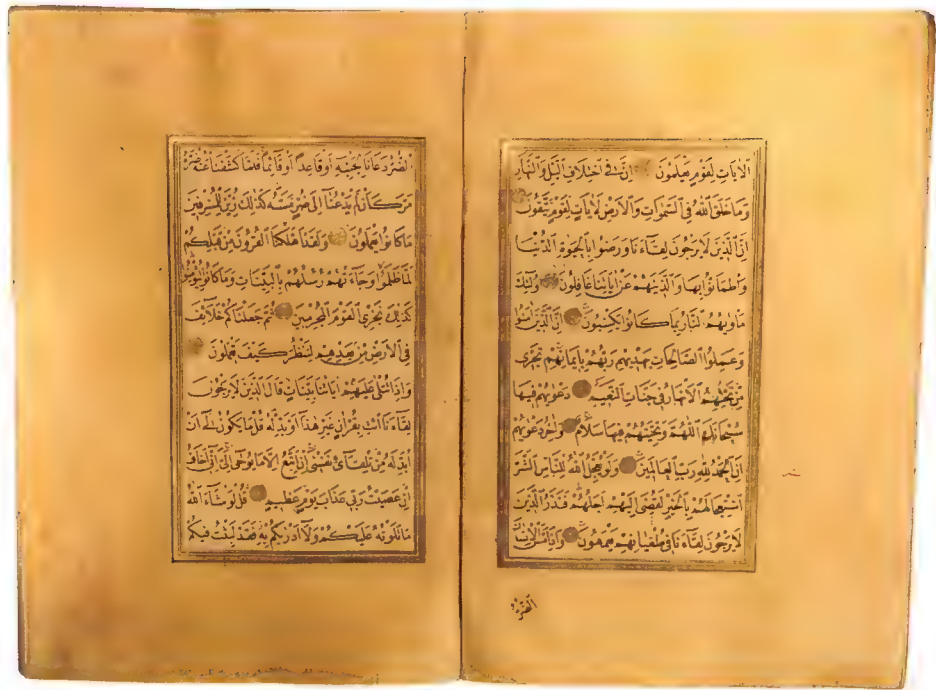 الآيات لقوم يعلمون إن في اختلاف الليل والنهار
وما خلق الله في السموات والأرض لآيات لقوم يتقون
إن الذين لا يرجون لقاءنا ورضوا بالحيوة الدنيا
واطمأنوا بها والذين هم عن آياتنا غافلون أولئك
مأويهم النار بما كانوا يكسبون إن الذين آمنوا
وعملوا الصالحات يهديهم ربهم بإيمانهم تجري
من تحتهم الأنهار في جنات النعيم دعويهم فيها
سبحانك اللهم وتحيتهم فيها سلام وآخر دعويهم
أن الحمد لله رب العالمين ولو يعجل الله للناس الشر
استعجالهم بالخير لقضي إليهم أجلهم فنذر الذين
لا يرجون لقاءنا في طغيانهم يعمهون وإذا مس الإنسان
الضر
الضر دعانا لجنبه أو قاعدا أو قائما فلما كشفنا عنه ضره
مر كأن لم يدعنا إلى ضر مسه كذلك زين للمسرفين
ما كانوا يعملون ولقد أهلكنا القرون من قبلكم
لما ظلموا وجاءتهم رسلهم بالبينات وما كانوا ليؤمنوا
كذلك نجزي القوم المجرمين ثم جعلناكم خلائف
في الأرض من بعدهم لننظر كيف تعملون
وإذا تتلى عليهم آياتنا بينات قال الذين لا يرجون
لقاءنا ائت بقرآن غير هذا أو بدله قل ما يكون لي أن
أبدله من تلقائ نفسي إن أتبع إلا ما يوحى إلي إني أخاف
إن عصيت ربي عذاب يوم عظيم قل لو شاء الله
ما تلوته عليكم ولا أدريكم به فقد لبثت فيكم